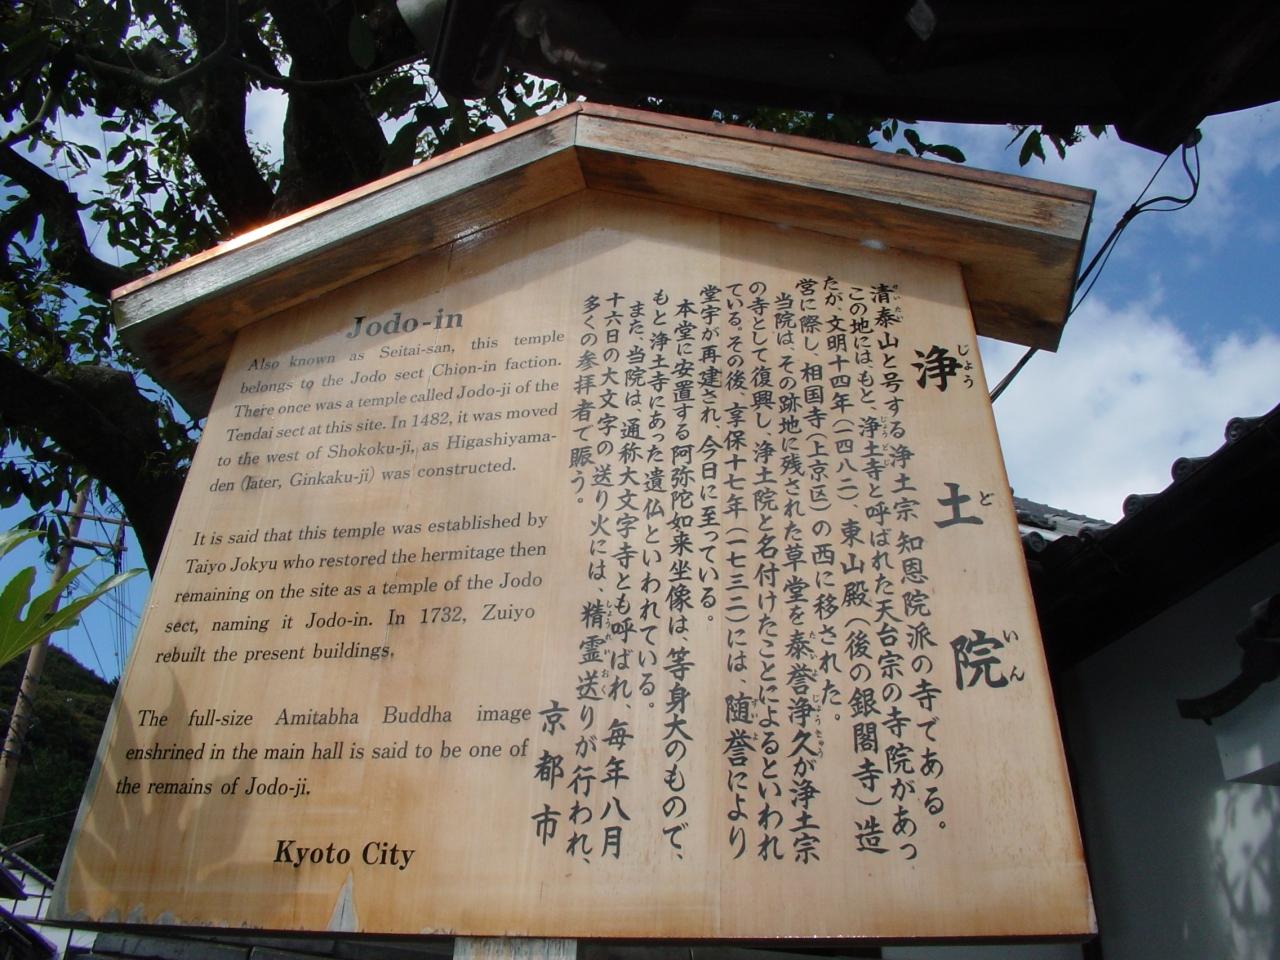 浄土院
じょうどいん
清泰山と号する浄土宗知恩院派の寺である。
せいたい
この地には、もと、浄土寺と呼ばれた天台宗の寺院があっ
じょうどじ
たが、文明十四年(一四八二)、東山殿(後の銀閣寺)造
営に際し、相国寺(上京区)の西に移された。
当院は、その跡地に残された草堂を泰誉浄久が浄土宗
たいよじょうきゅう
の寺として復興し、浄土院と名付けたことによるといわれ
ている。その後、享保十七年(一七三二)には、随誉により
ずいよ
堂宇が再建され、今日に至っている。
本堂に安置する阿弥陀如来坐像は、等身大のもので、
もと浄土寺にあった遺仏といわれている。
また、当院は、通称大文字寺とも呼ばれ、毎年八月
十六日の大文字の送り火には、精霊送りが行われ、
しょうれいおく
多くの参拝者で賑う。
京都市
Jodo-in
Also known as Seitai-san, this temple
belongs to the Jodo sect Chion-in faction.
There once was a temple called Jodo-ji of the
Tendai sect at this site. In 1482, it was moved
to the west of Shokoku-ji, as Higashiyama-
den (later, Ginkaku-ji) was constructed.
It is said that this temple was established by
Taiyo Jokyu who restored the hermitage then
remaining on the site as a temple of the Jodo
sect, naming it Jodo-in. In 1732, Zuiyo
rebuilt the present buildings.
The full-size Amitabha Buddha image
enshrined in the main hall is said to be one of
the remains of Jodo-ji.
Kyoto City